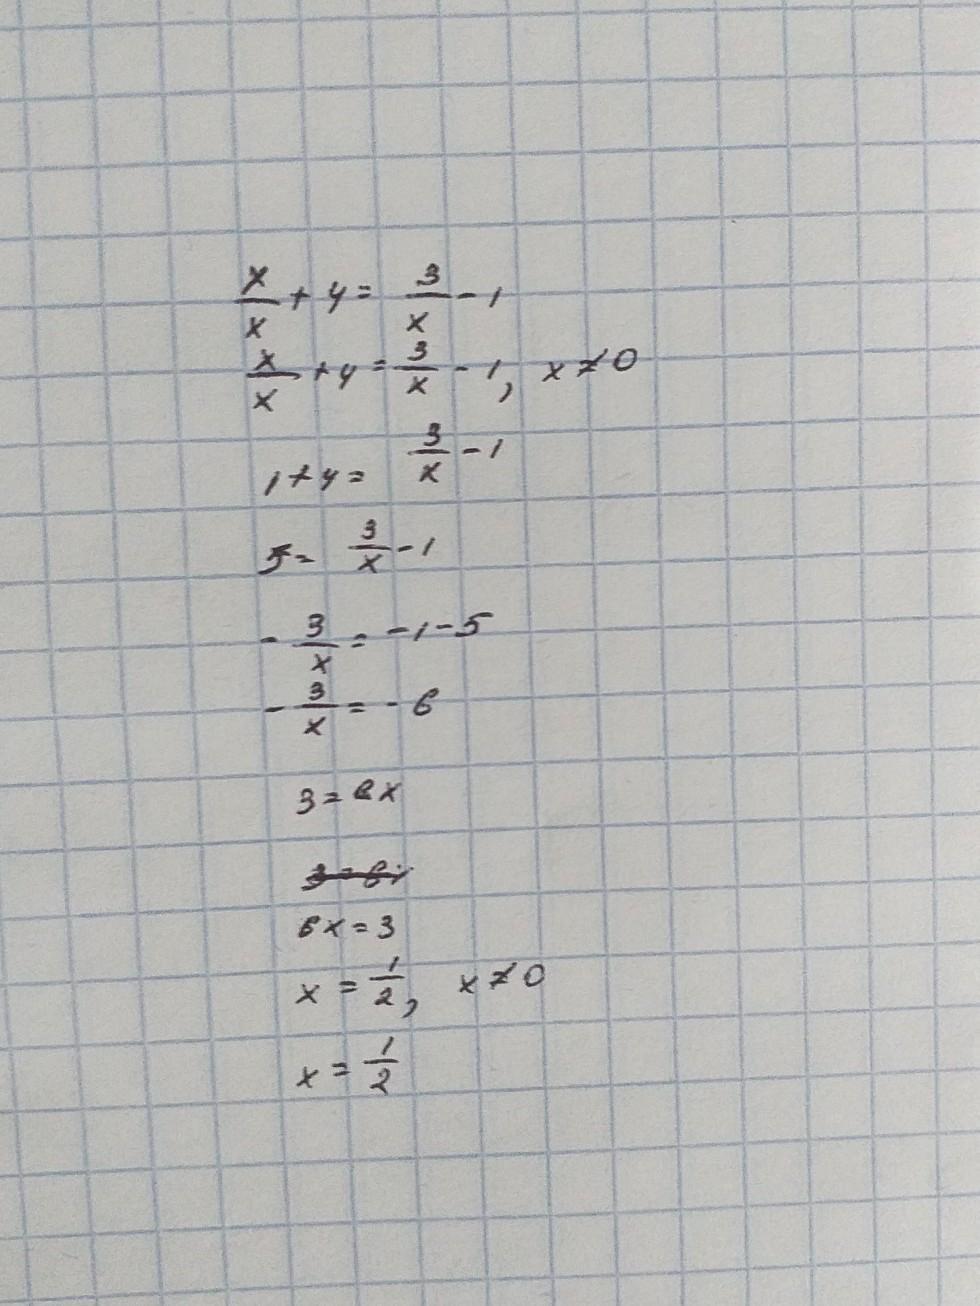 x/x + 4 = 3/x - 1
x/x + 4 = 3/x - 1, x ≠ 0
1 + 4 = 3/x - 1
5 = 3/x - 1
- 3/x = -1 - 5
- 3/x = - 6
3 = 6x
6x = 3
x = 1/2, x ≠ 0
x = 1/2